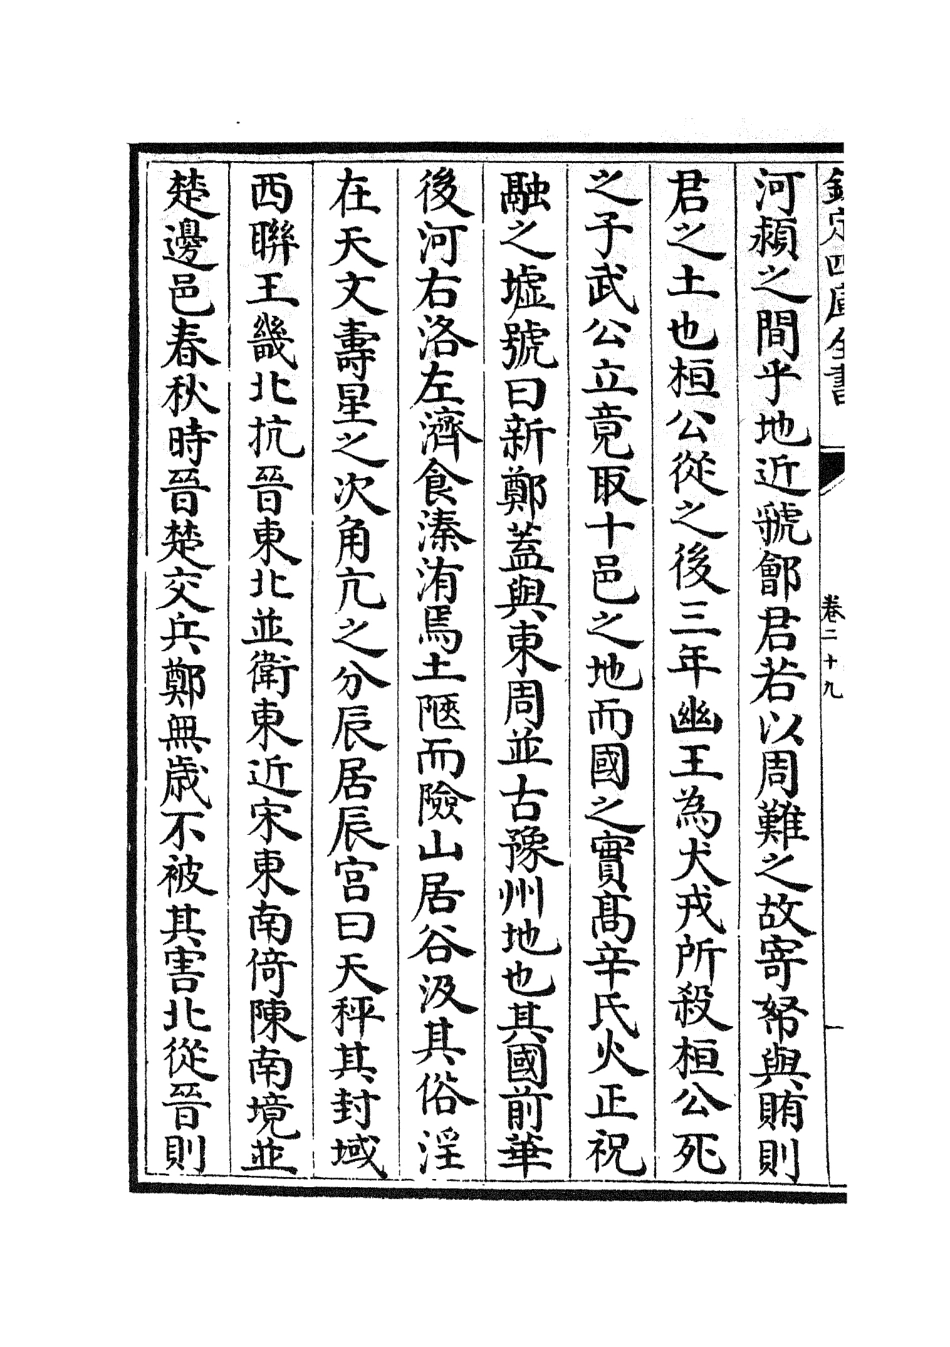 欽定四庫全書
卷二十九
河潁之間乎地近虢鄶君若以周難之故寄帑與賄則
君之土也桓公從之後三年幽王為犬戎所殺桓公死
之子武公立竟取十邑之地而國之實髙辛氏火正祝
融之墟號曰新鄭蓋與東周並古豫州地也其國前華
後河右洛左濟食溱洧焉土陿而險山居谷汲其俗淫
在天文壽星之次角亢之分辰居辰宫曰天秤其封域
西聯王畿北抗晉東北並衛東近宋東南倚陳南境並
楚邊邑春秋時晉楚交兵鄭無歲不被其害北從晉則